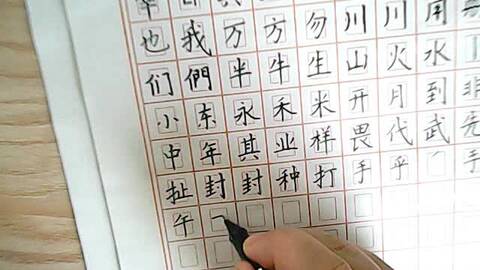 也我万方勿川川用
们們半牛生山火水
小东永禾米开月到非
中年其业样畏代武先
扯封封种打手乎手
午